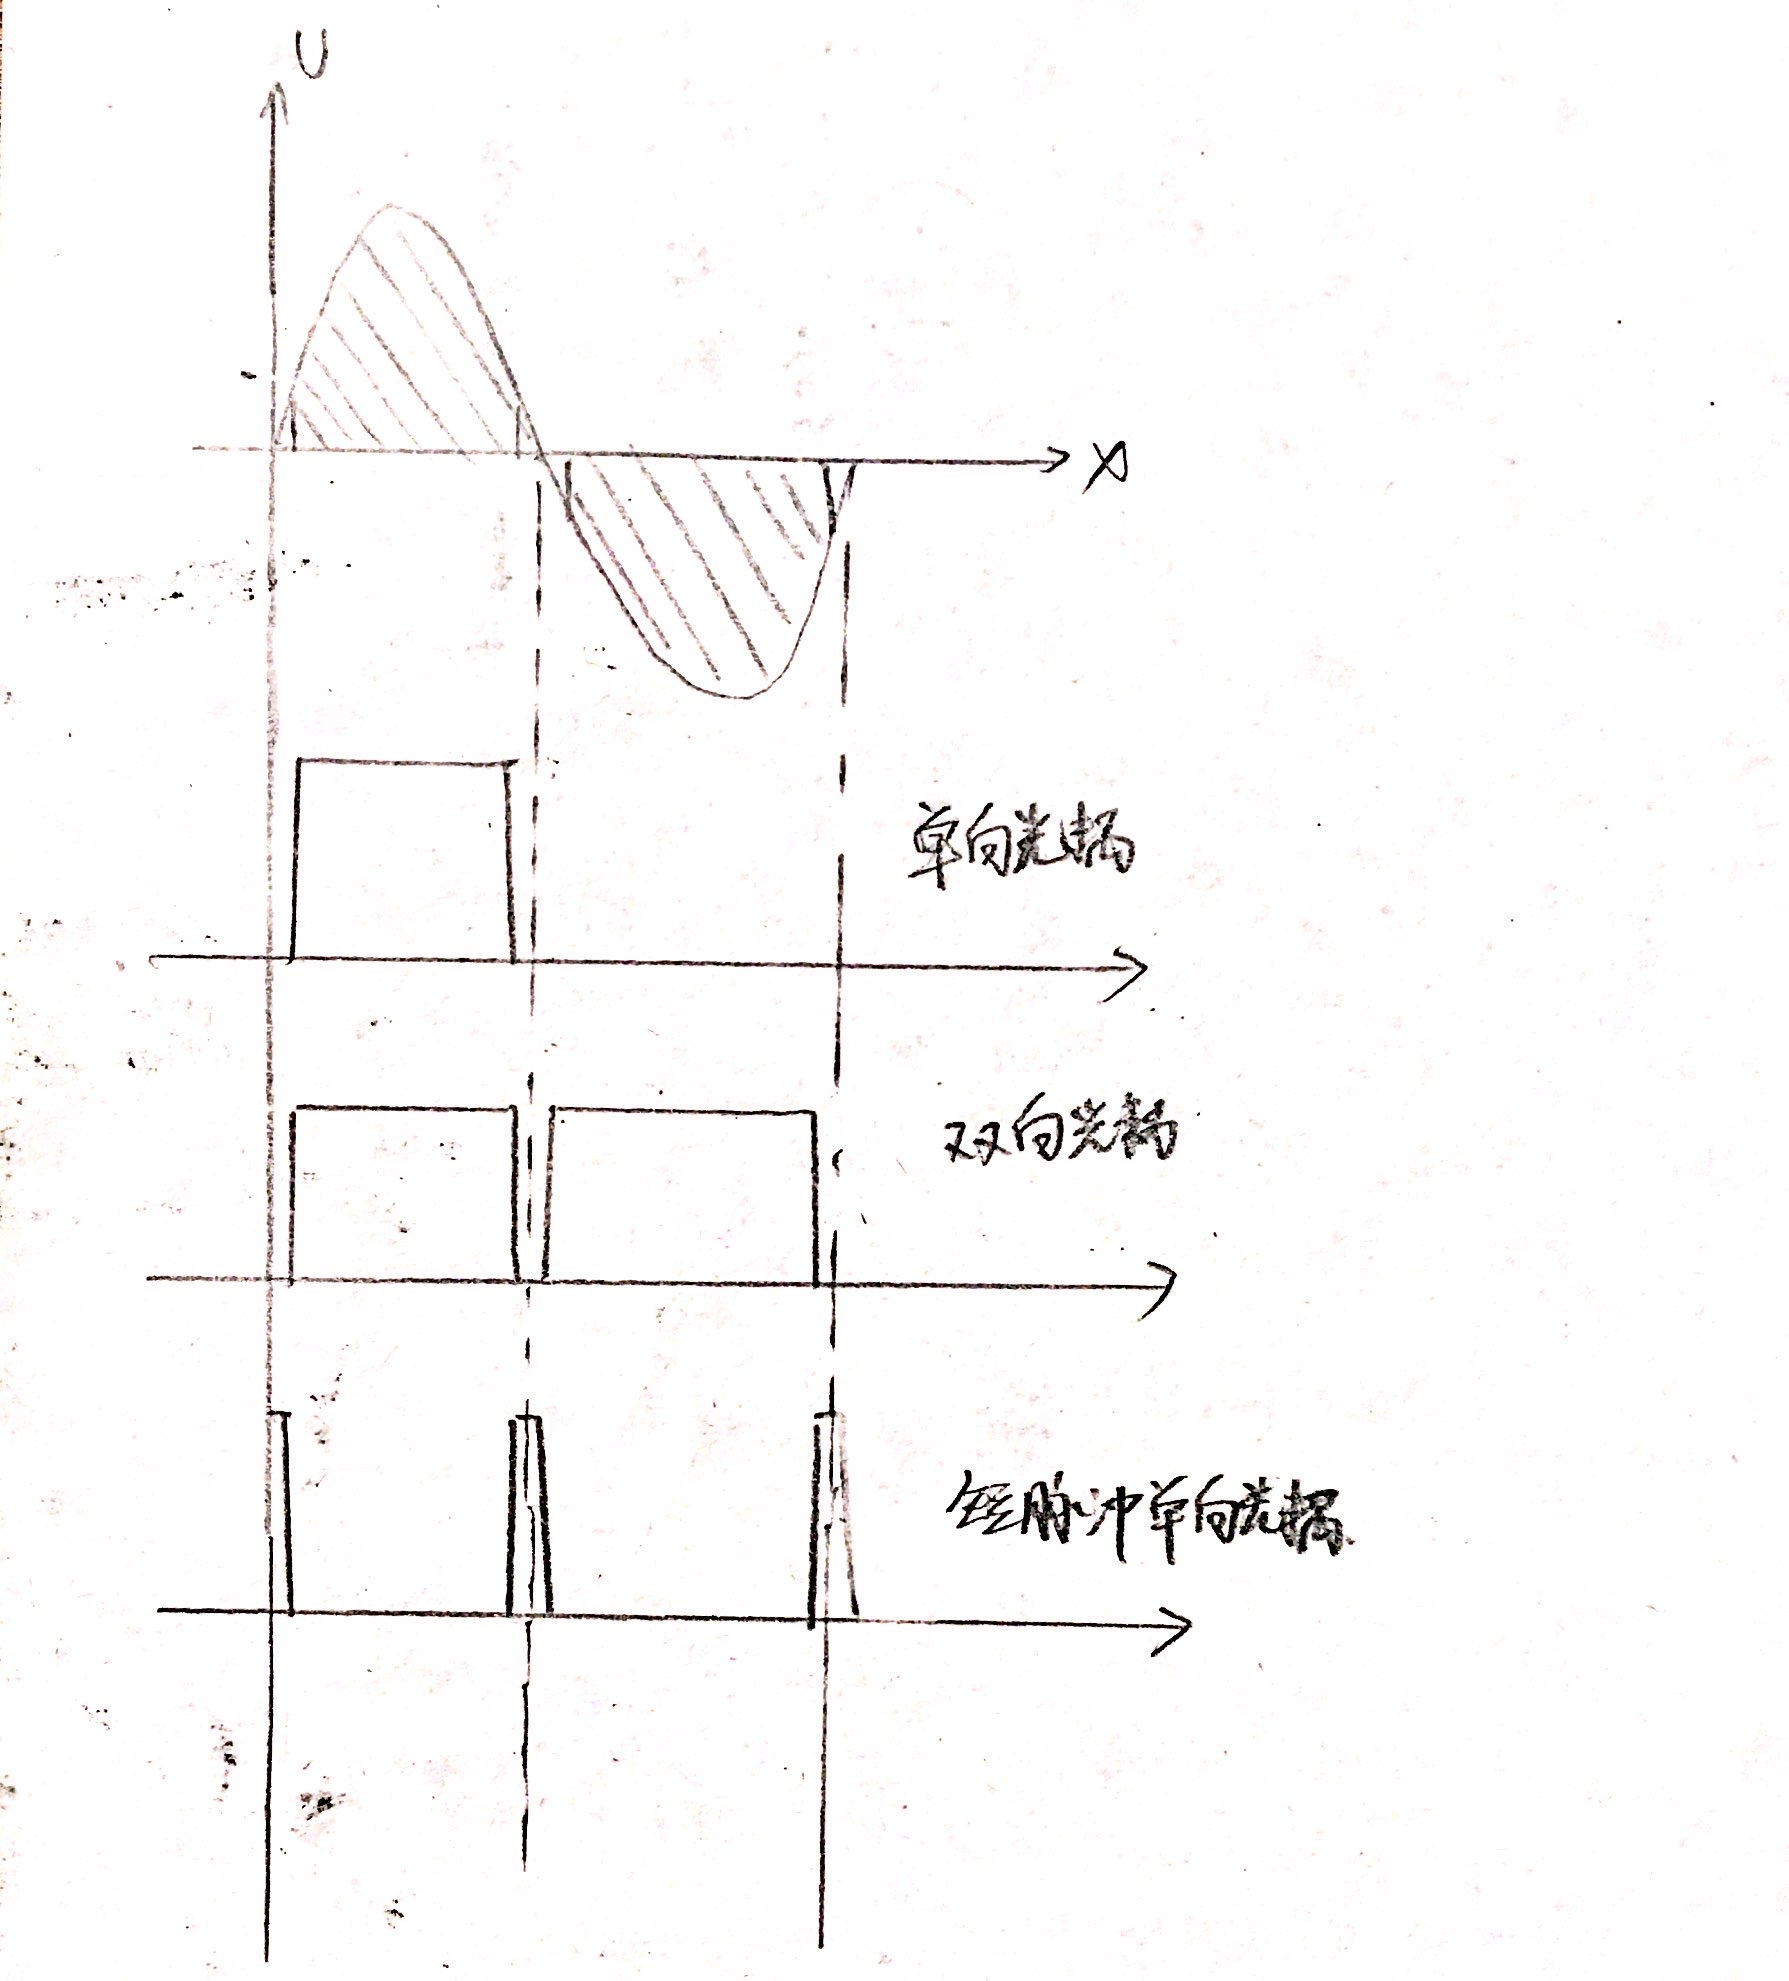 U
X
单向光耦
双向光耦
短脉冲单向光耦